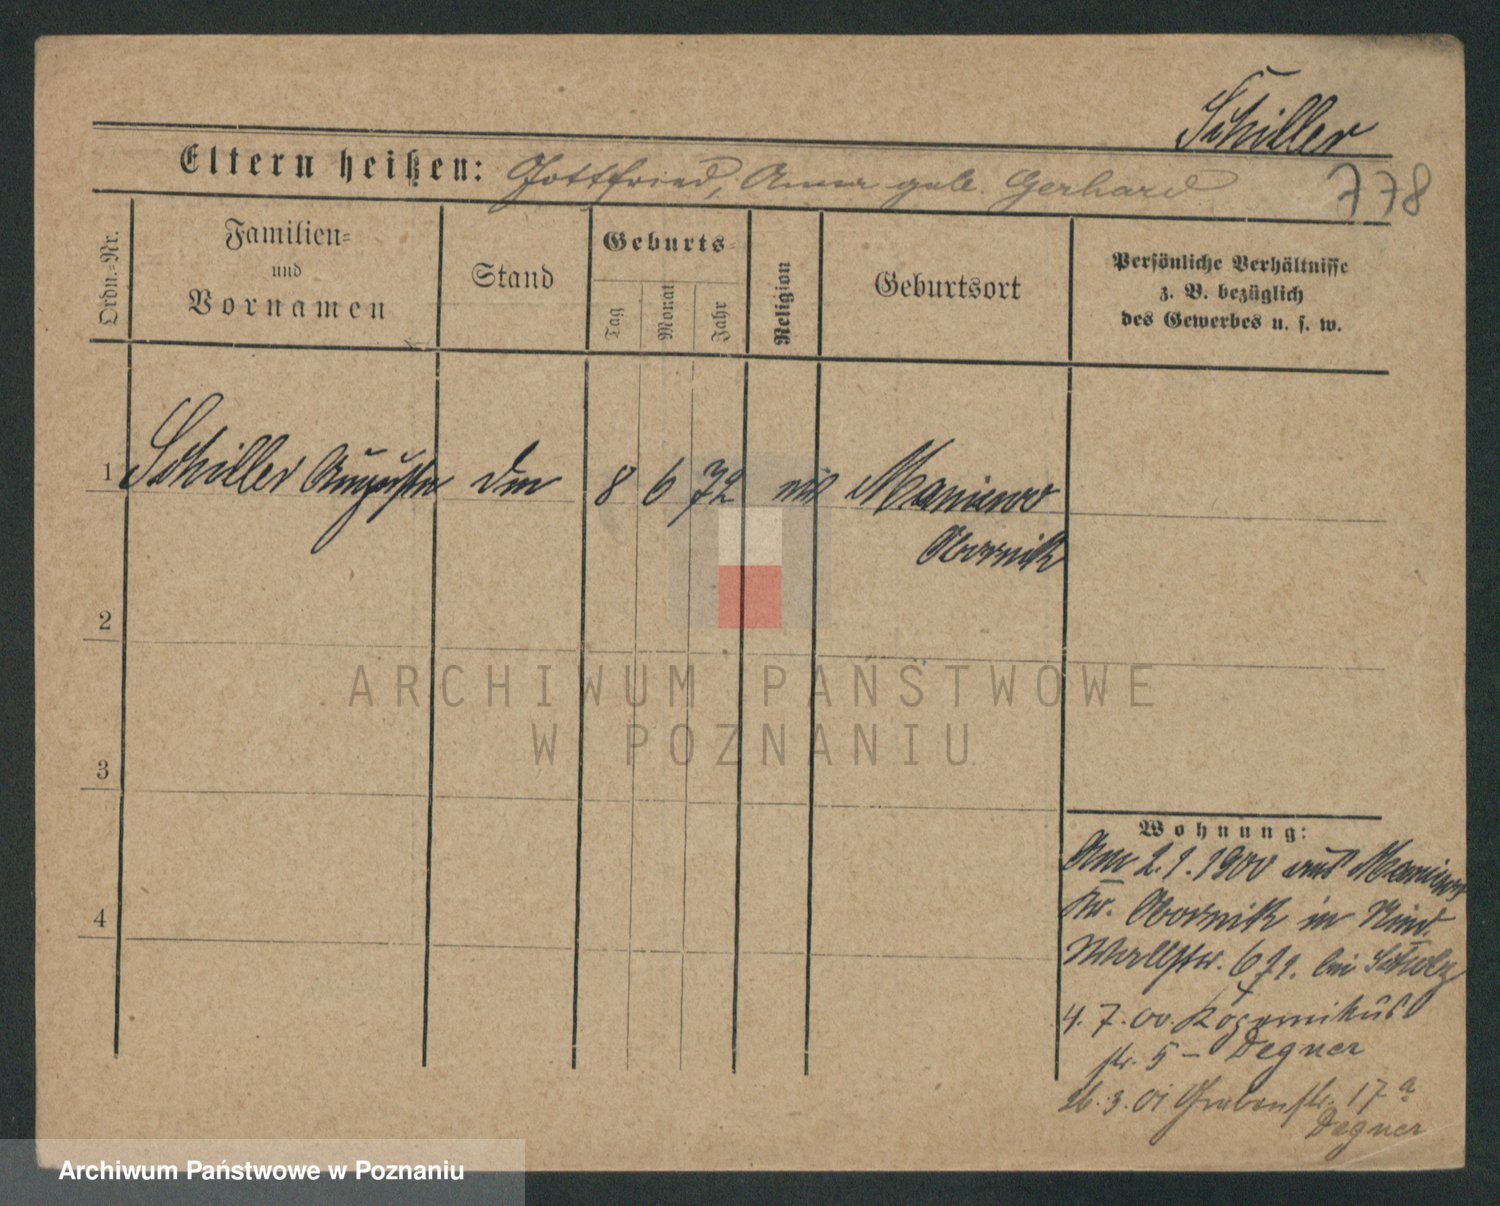 Schiller
Eltern heißen: Gottfried, Anna geb. Gerhard
778
Ordn.=Nr.
Familien=
und
Vornamen
Stand
Geburts=
Tag
Monat
Jahr
Religion
Geburtsort
Persönliche Verhältnisse
z. B. bezüglich
des Gewerbes u. s. w.
1 Schiller 8 6 72 Marienrode
Obornik
2
3
4
ARCHIWUM PAŃSTWOWE
W POZNANIU
Wohnung:
Am 2.1.1900 aus
Kr. Obornik in
Wallstr. bei Scholz
4.7.00. Kopernikus
str. 5 - Degner
26.3.01 Grabenstr. 17a
Degner
Archiwum Państwowe w Poznaniu